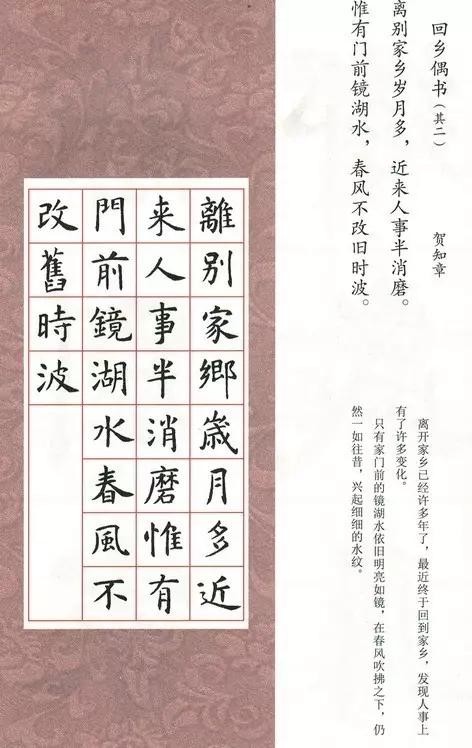 回乡偶书（其二）
贺知章
离别家乡岁月多，近来人事半消磨。
惟有门前镜湖水，春风不改旧时波。
离开家乡已经许多年了，最近终于回到家乡，发现人事上
有了许多变化。
只有家门前的镜湖水依旧明亮如镜，在春风吹拂之下，仍
然一如往昔，兴起细细的水纹。
離别家鄉歲月多近
来人事半消磨惟有
門前鏡湖水春風不
改舊時波